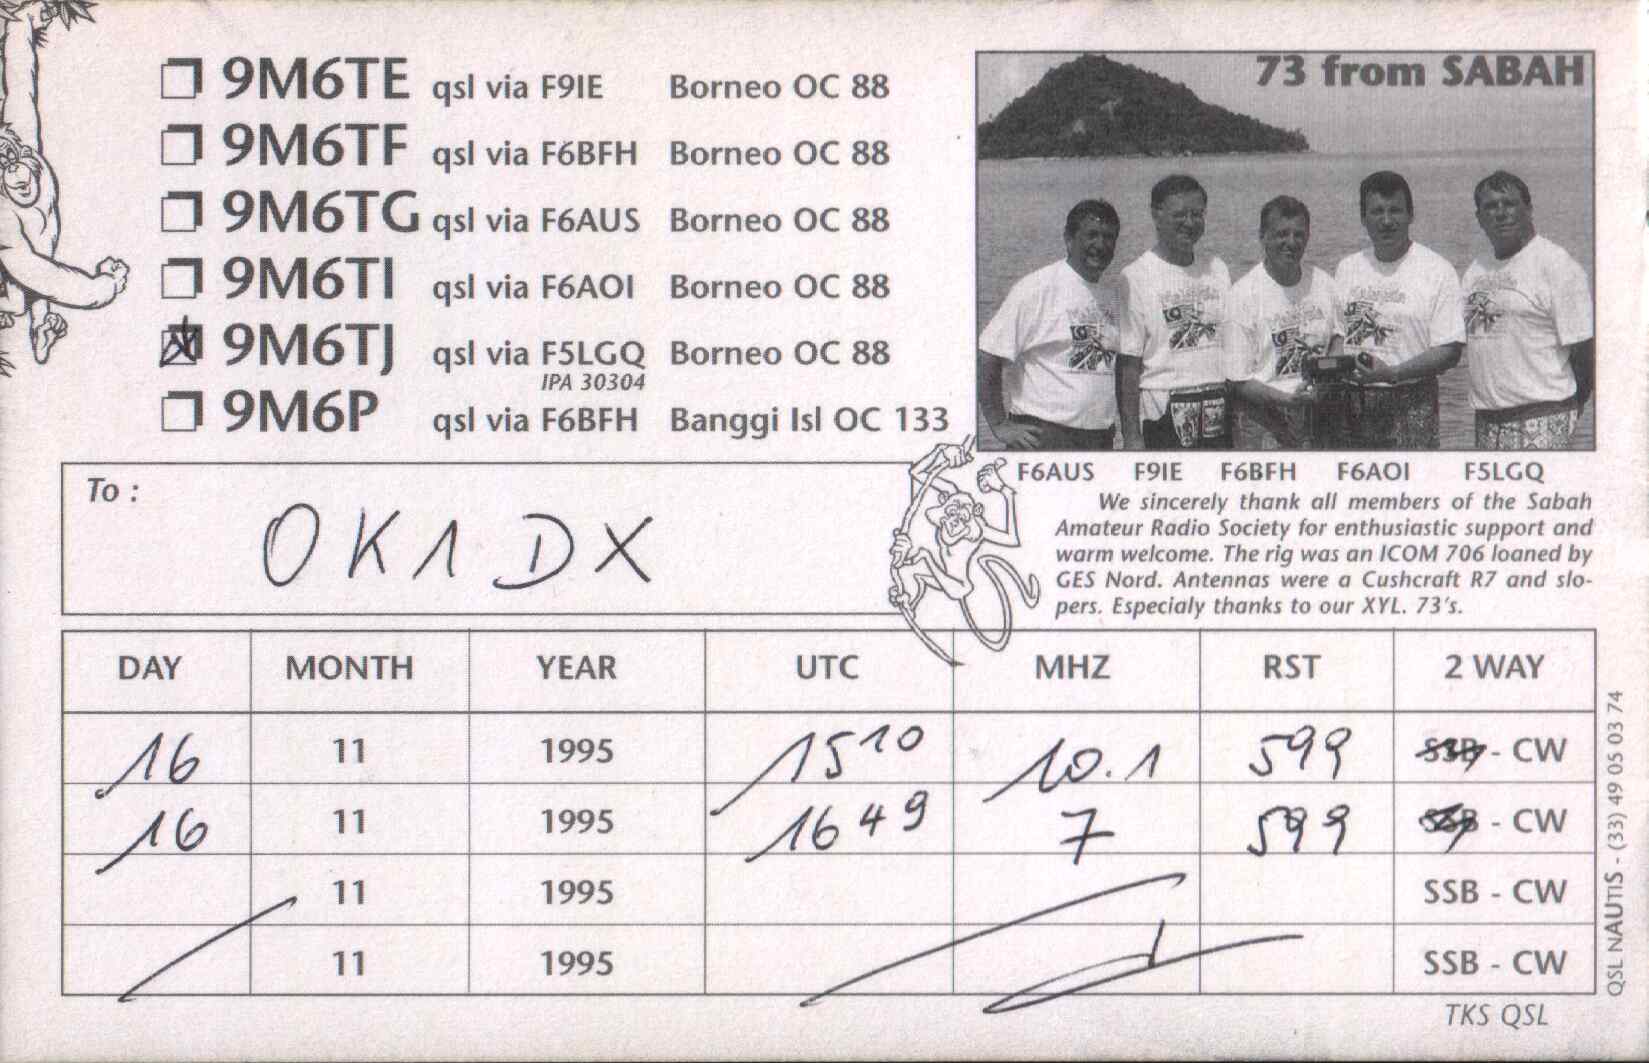 9M6TE qsl via F9IE Borneo OC 88
9M6TF qsl via F6BFH Borneo OC 88
9M6TG qsl via F6AUS Borneo OC 88
9M6TI qsl via F6AOI Borneo OC 88
9M6TJ qsl via F5LGQ Borneo OC 88
IPA 30304
9M6P qsl via F6BFH Banggi Isl OC 133
73 from SABAH
F6AUS F9IE F6BFH F6AOI F5LGQ
We sincerely thank all members of the Sabah
Amateur Radio Society for enthusiastic support and
warm welcome. The rig was an ICOM 706 loaned by
GES Nord. Antennas were a Cushcraft R7 and slo-
pers. Especialy thanks to our XYL. 73's.
To :
OK1DX
DAY MONTH YEAR UTC MHZ RST 2 WAY
16 11 1995 1510 10.1 599 SSB - CW
16 11 1995 1649 7 599 SSB - CW
11 1995 SSB - CW
11 1995 SSB - CW
TKS QSL
QSL NAUTIS - (33) 49 05 03 74